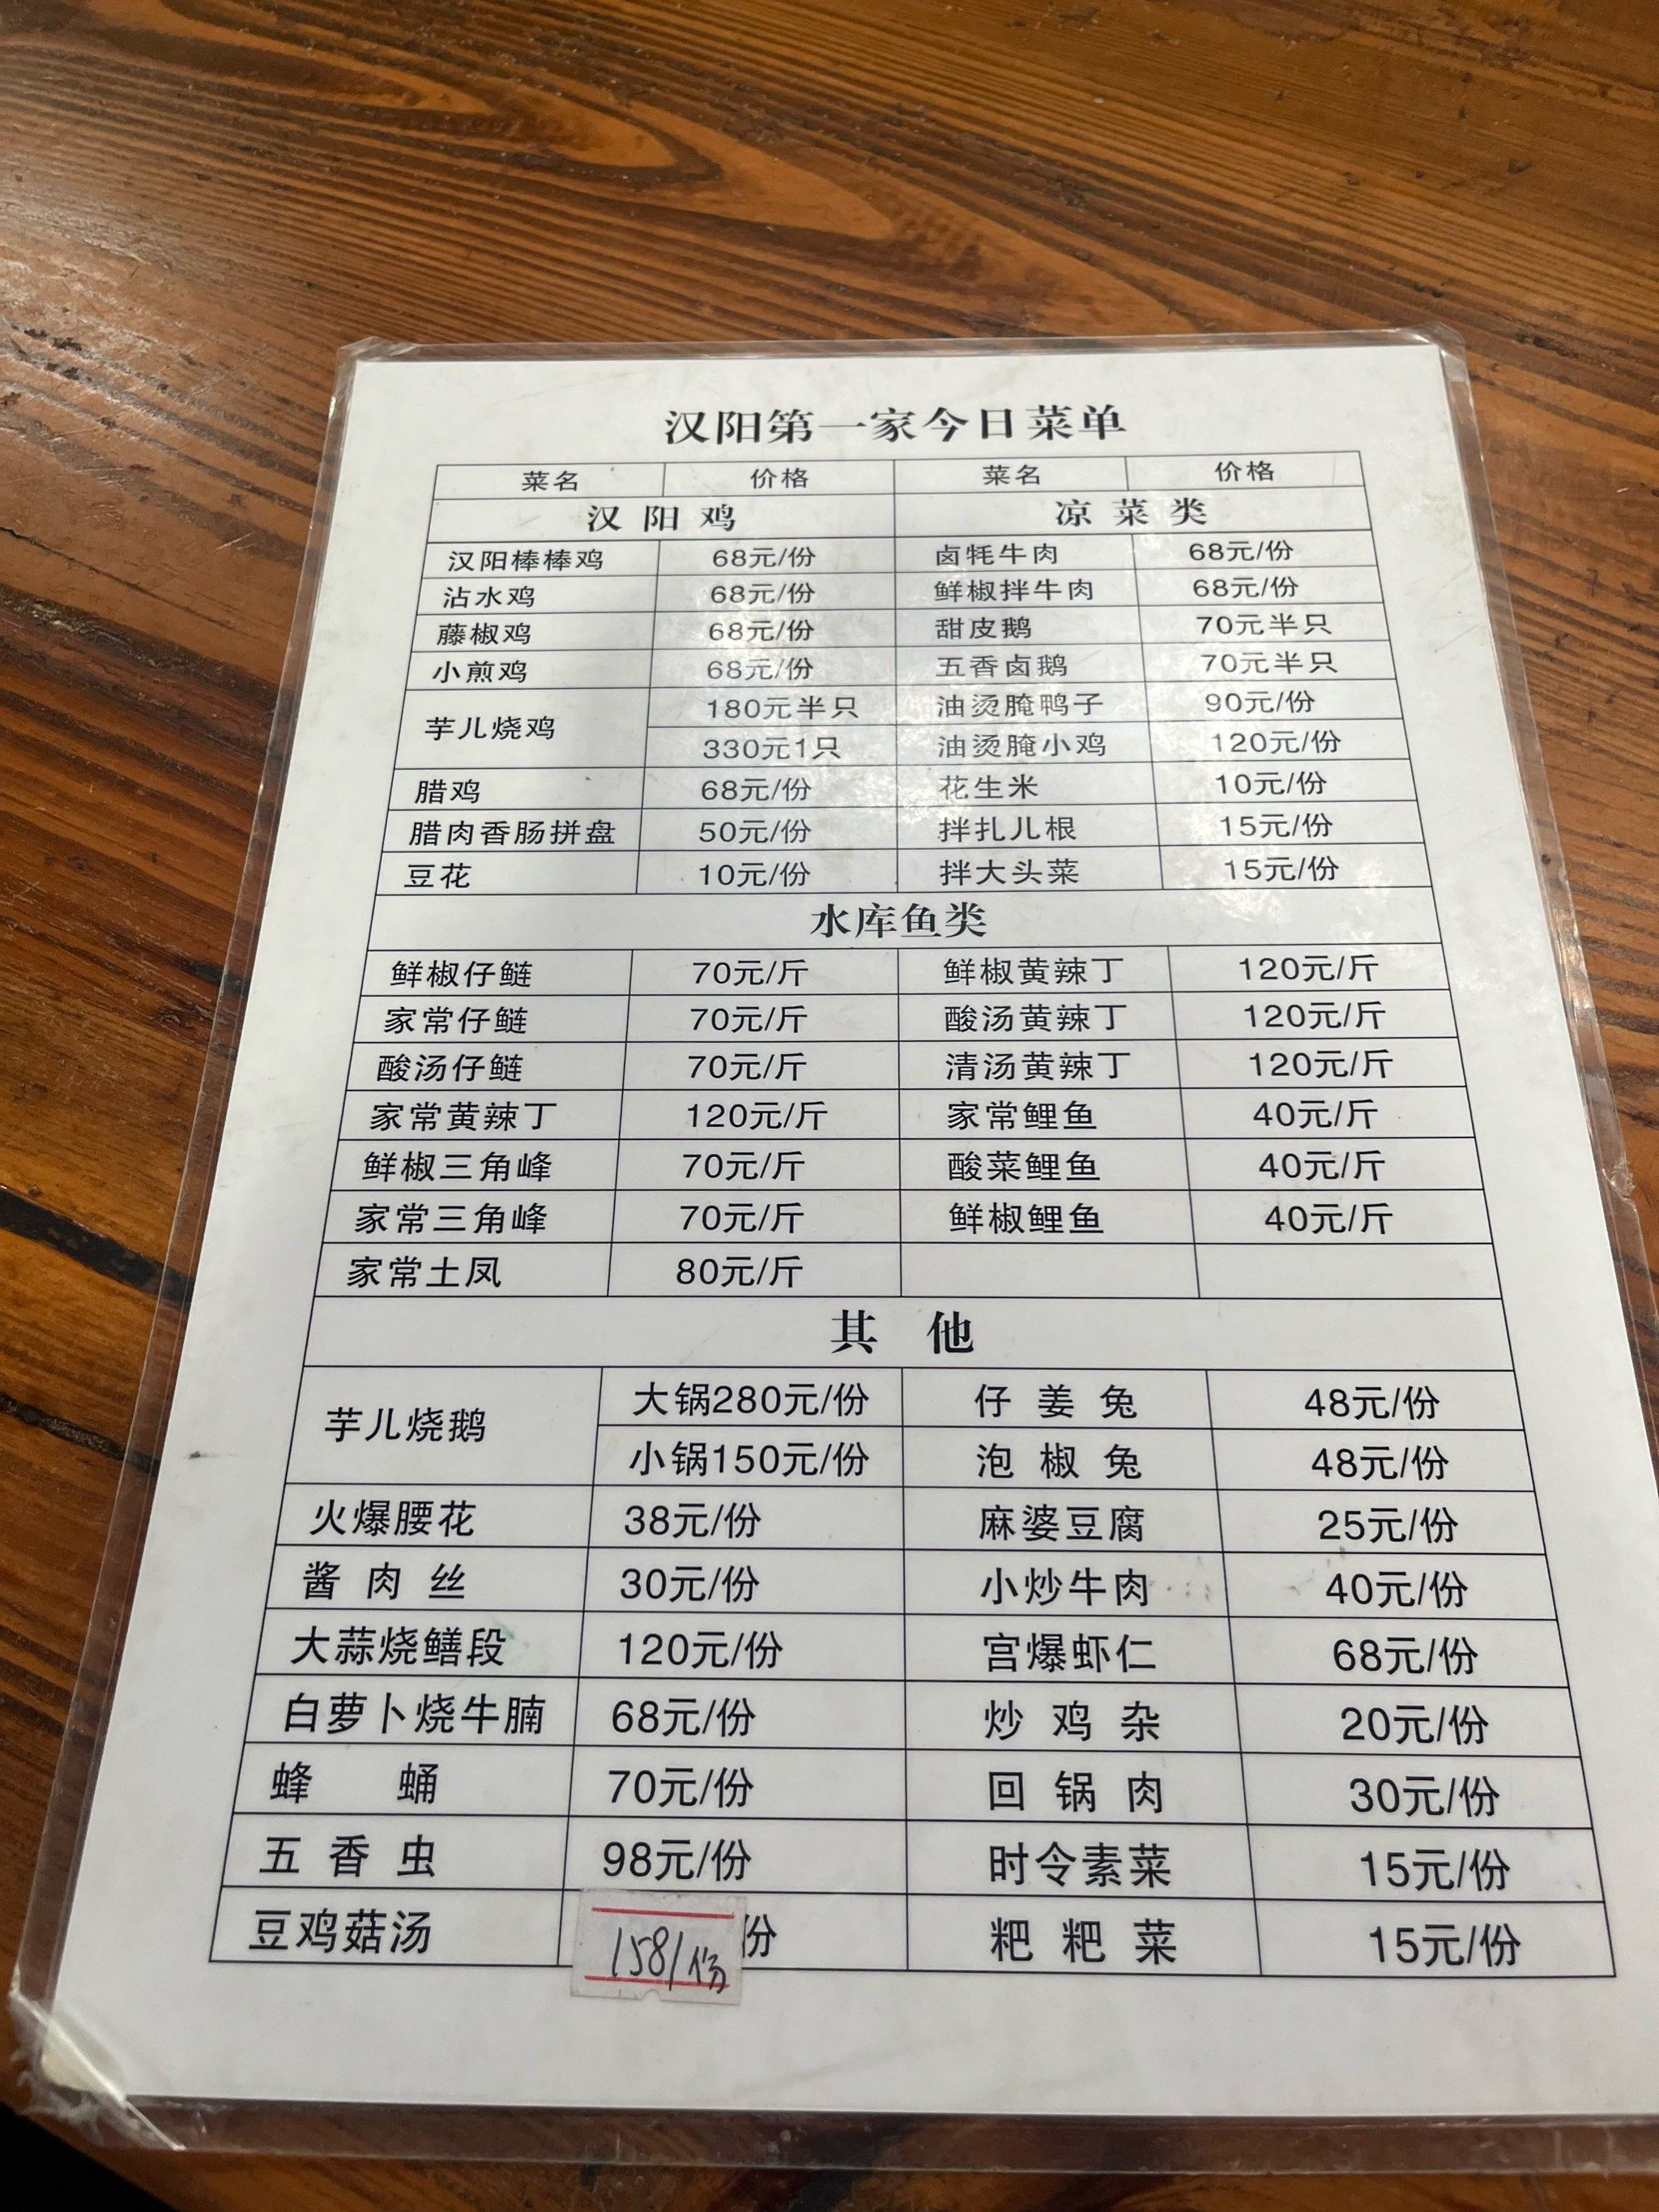 汉阳第一家今日菜单
菜名 价格 菜名 价格
汉阳鸡 凉菜类
汉阳棒棒鸡 68元/份 卤牦牛肉 68元/份
沾水鸡 68元/份 鲜椒拌牛肉 68元/份
藤椒鸡 68元/份 甜皮鹅 70元半只
小煎鸡 68元/份 五香卤鹅 70元半只
芋儿烧鸡 180元半只 油烫腌鸭子 90元/份
330元1只 油烫腌小鸡 120元/份
腊鸡 68元/份 花生米 10元/份
腊肉香肠拼盘 50元/份 拌扎儿根 15元/份
豆花 10元/份 拌大头菜 15元/份
水库鱼类
鲜椒仔鲢 70元/斤 鲜椒黄辣丁 120元/斤
家常仔鲢 70元/斤 酸汤黄辣丁 120元/斤
酸汤仔鲢 70元/斤 清汤黄辣丁 120元/斤
家常黄辣丁 120元/斤 家常鲤鱼 40元/斤
鲜椒三角峰 70元/斤 酸菜鲤鱼 40元/斤
家常三角峰 70元/斤 鲜椒鲤鱼 40元/斤
家常土凤 80元/斤
其他
芋儿烧鹅 大锅280元/份 仔姜兔 48元/份
小锅150元/份 泡椒兔 48元/份
火爆腰花 38元/份 麻婆豆腐 25元/份
酱肉丝 30元/份 小炒牛肉 40元/份
大蒜烧鳝段 120元/份 宫爆虾仁 68元/份
白萝卜烧牛腩 68元/份 炒鸡杂 20元/份
蜂蛹 70元/份 回锅肉 30元/份
五香虫 98元/份 时令素菜 15元/份
豆鸡菇汤 158/份 份 粑粑菜 15元/份